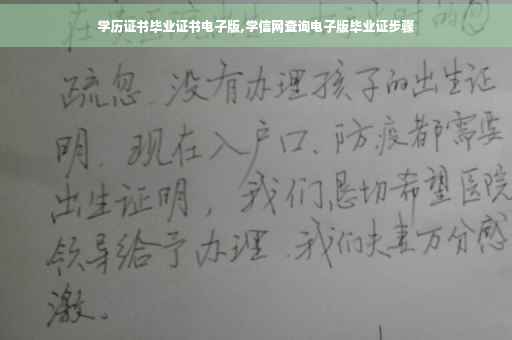 学历证书毕业证书电子版,学信网查询电子版毕业证步骤
疏忽.没有办理孩子的出生证
明.现在入户口、防疫都需要
出生证明，我们恳切希望医院
领导给予办理.我们夫妻万分感
激。